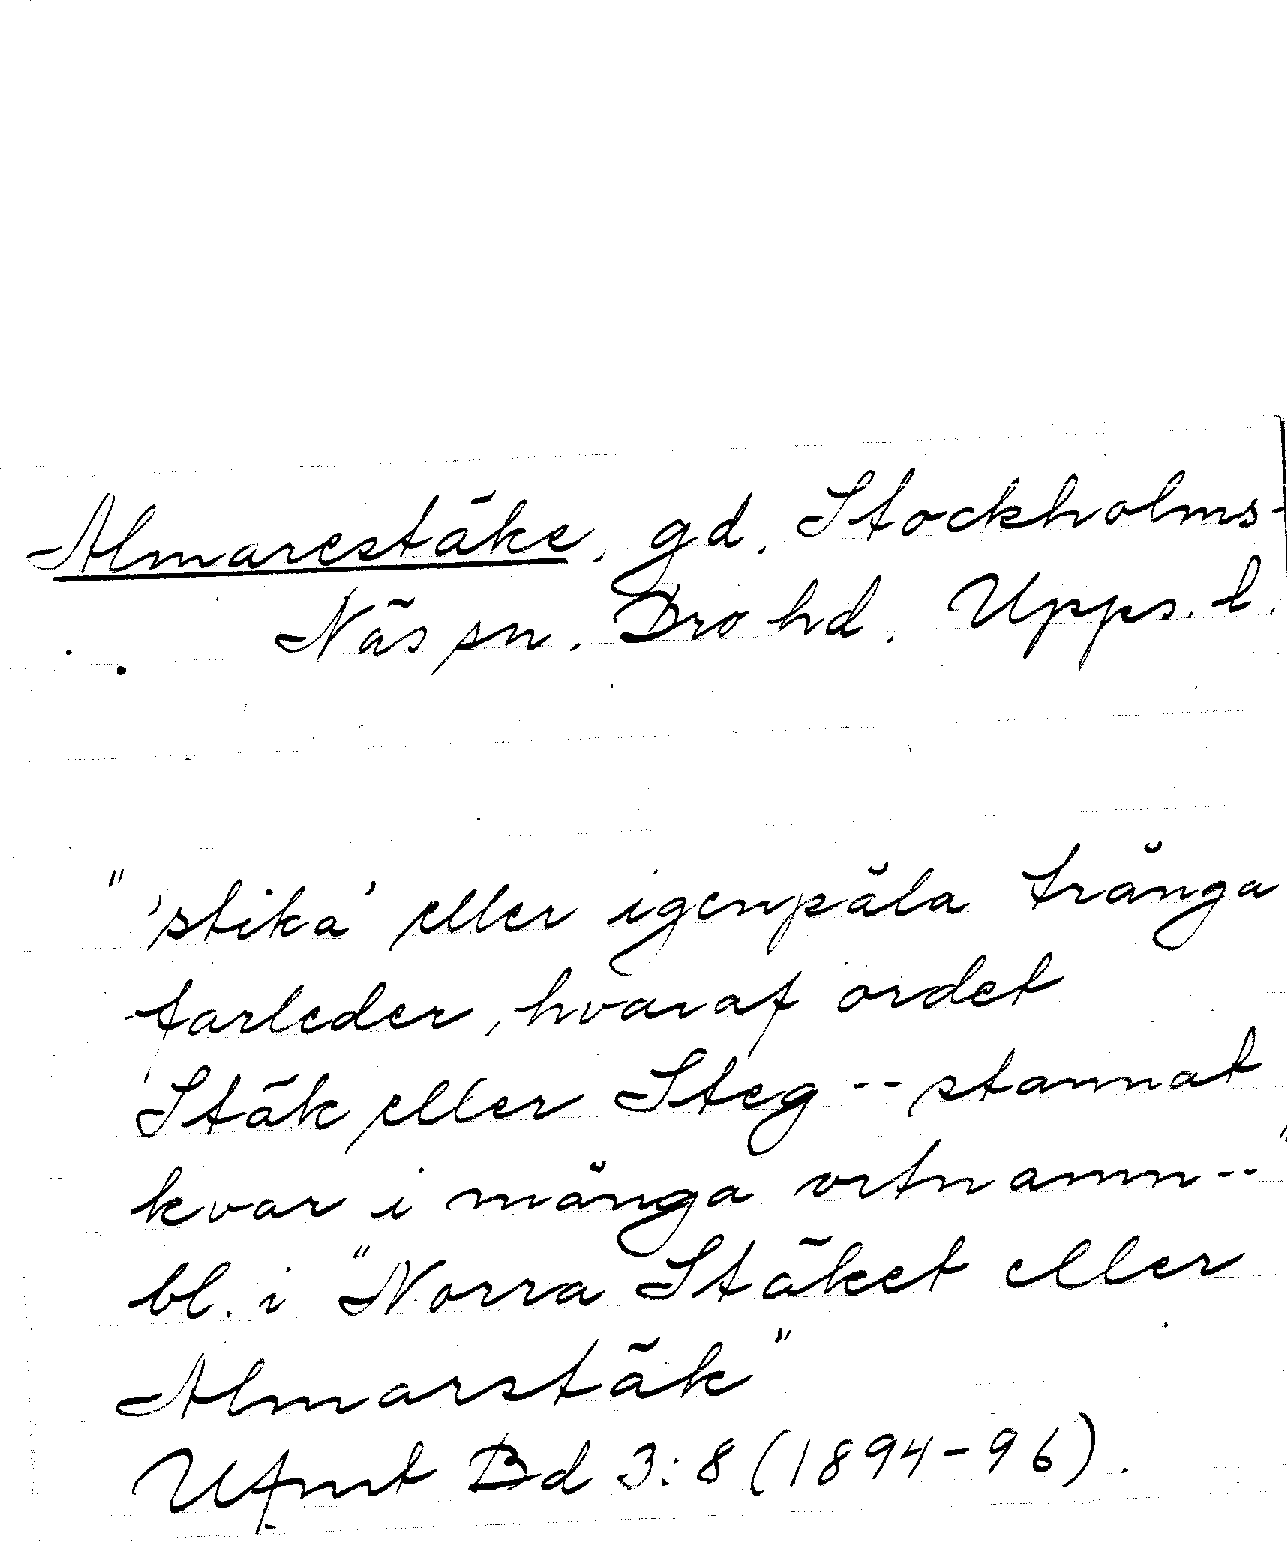 Almarestäke, gd, Stockholms-
Näs sn. Bro hd. Upps. l.
" 'stika' eller igenpåla trånga
farleder, hvaraf ordet
'Stäk eller Steg -- stannat
kvar i många ortnamn -- "
bl. i "Norra Stäket eller
Almarstäk"
Ufmt Bd 3:8 (1894-96).